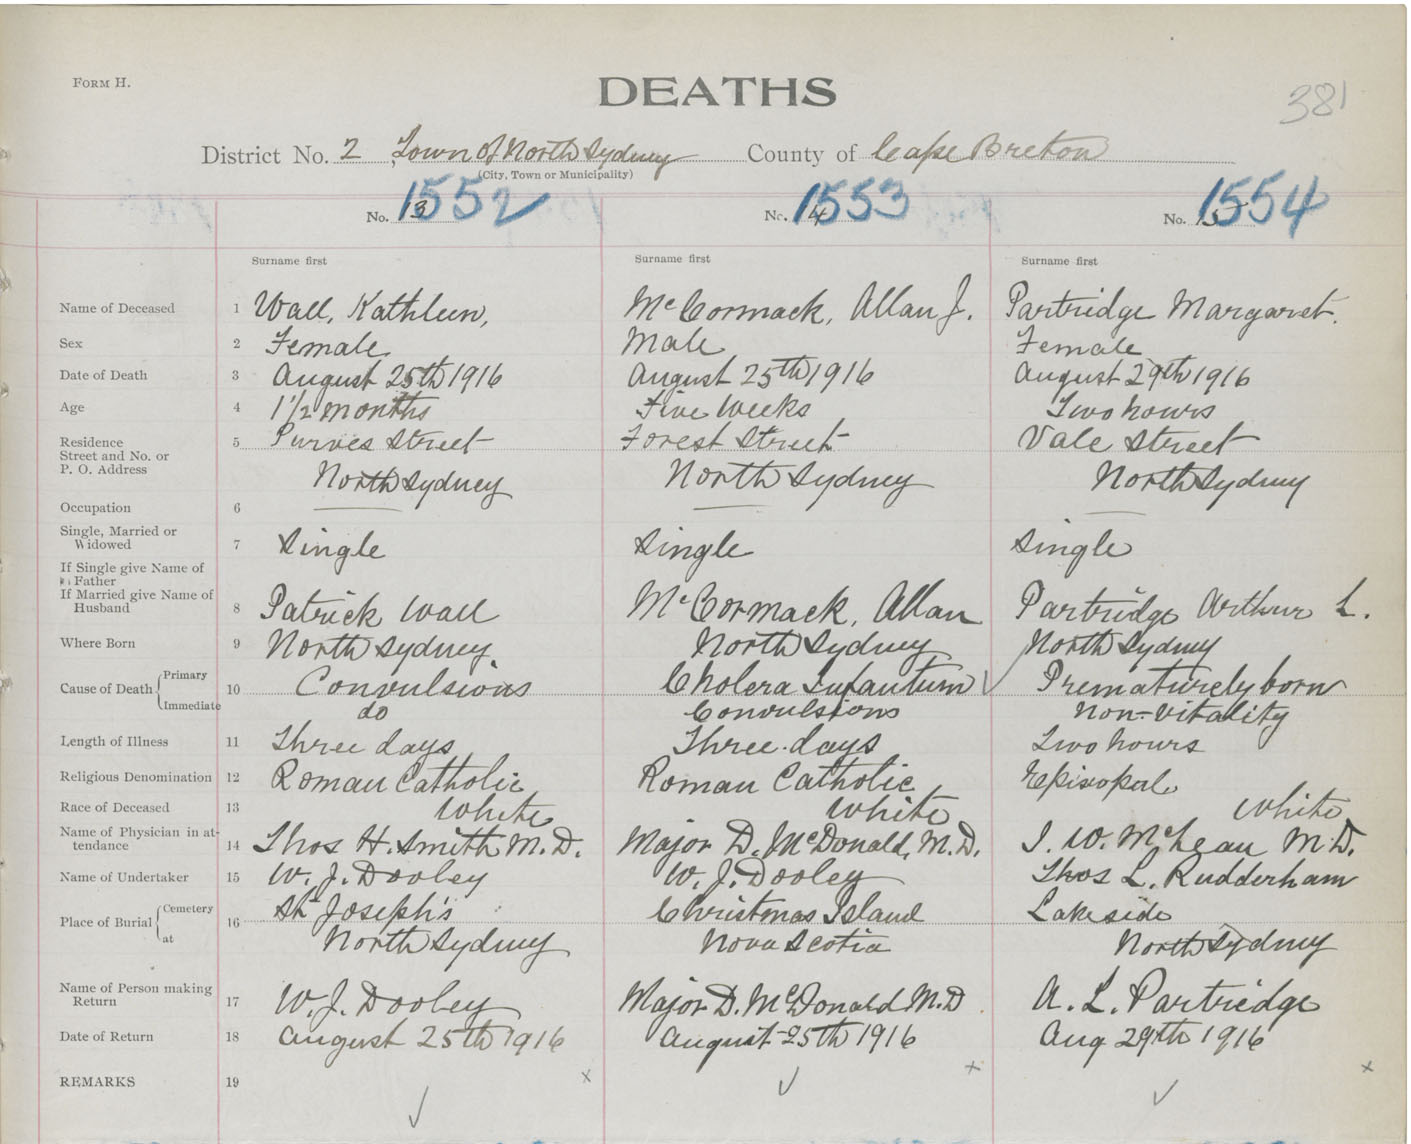 FORM H.
DEATHS
381
District No. 2 Town of North Sydney County of Cape Breton
(City, Town or Municipality)
No. 13 1552 No. 14 1553 No. 15 1554
Surname first Surname first Surname first
Name of Deceased 1 Wall, Kathleen, McCormack, Allan J. Partridge Margaret.
Sex 2 Female Male Female
Date of Death 3 August 25th 1916 August 25th 1916 August 29th 1916
Age 4 1 1/2 months Five Weeks Two hours
Residence 5 Purves Street Forest Street Vale Street
Street and No. or
P. O. Address North Sydney North Sydney North Sydney
Occupation 6
Single, Married or
Widowed 7 Single Single Single
If Single give Name of
Father
If Married give Name of
Husband 8 Patrick Wall McCormack, Allan Partridge Arthur L.
Where Born 9 North Sydney North Sydney North Sydney
Cause of Death Primary 10 Convulsions Cholera Infantum Prematurely born
Immediate do Convulsions Non-Vitality
Length of Illness 11 Three days Three days Two hours
Religious Denomination 12 Roman Catholic Roman Catholic Episopal
Race of Deceased 13 White White White
Name of Physician in at-
tendance 14 Thos H. Smith M.D. Major D. McDonald, M.D. J. W. McLean M.D.
Name of Undertaker 15 W. J. Dooley W. J. Dooley Thos L. Rudderham
Place of Burial Cemetery 16 St Joseph's Christmas Island Lakeside
at North Sydney Nova Scotia North Sydney
Name of Person making
Return 17 W. J. Dooley Major D. McDonald M.D A. L. Partridge
Date of Return 18 August 25th 1916 August 25th 1916 Aug 29th 1916
REMARKS 19 x x x